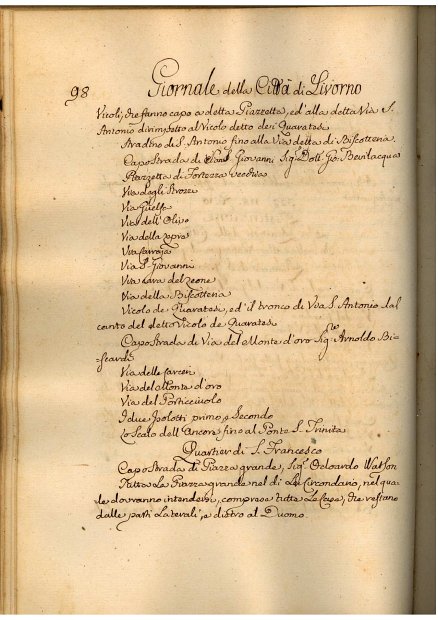 98
Giornale della Città di Livorno
Vicoli, che fanno capo a detta Piazzetta, ed' alla detta Via S.
Antonio dirimpetto al Vicolo detto dei Quaratesi
Stradino di S. Antonio fino alla Via detta di Biscotteria.
Capo Strada di Giovanni Sig. Dott. Gio: Bevilacqua
Piazzetta di Fortezza vecchia
Via degli Strozzi
Via Guelfa
Via dell' Olivo
Via della
Via Carraja
Via S. Giovanni
Via Cava del Leone
Via della Biscotteria
Vicolo de Quaratesi, ed' il tronco di Via S. Antonio dal
canto del detto Vicolo de Quaratesi
Capo Strada di Via del Monte d'oro Sig. Arnoldo
Via delle Carceri
Via del Monte d'oro
Via del Porticciuolo
I due Isolotti primo, e Secondo
Lo Scalo dell' Ancore fino al Ponte S. Trinita
Quartier di S. Francesco
Capo Strada di Piazza grande, Sig. Odoardo Watson
Tutta La Piazza grande nel di Lei Circondario, nel qua-
le dovranno intendersi, comprese tutte Le Case, che restano
dalle parti Laterali, e dietro al Duomo.